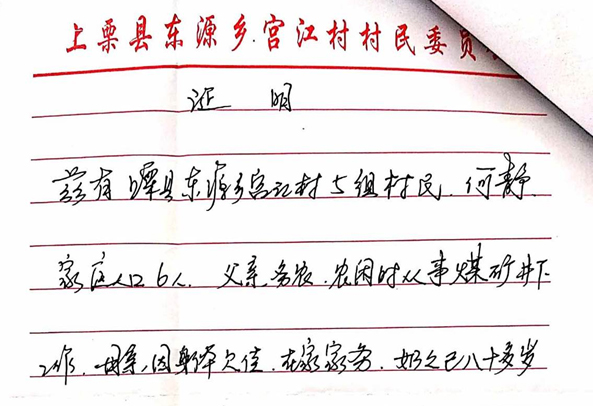 上栗县东源乡宫江村村民委员
证 明
兹有上栗县东源乡宫江村5组村民,何静
家庭人口6人,父亲务农,农闲时从事煤矿井下
工作,母亲,因身体欠佳,在家家务,奶奶已八十多岁